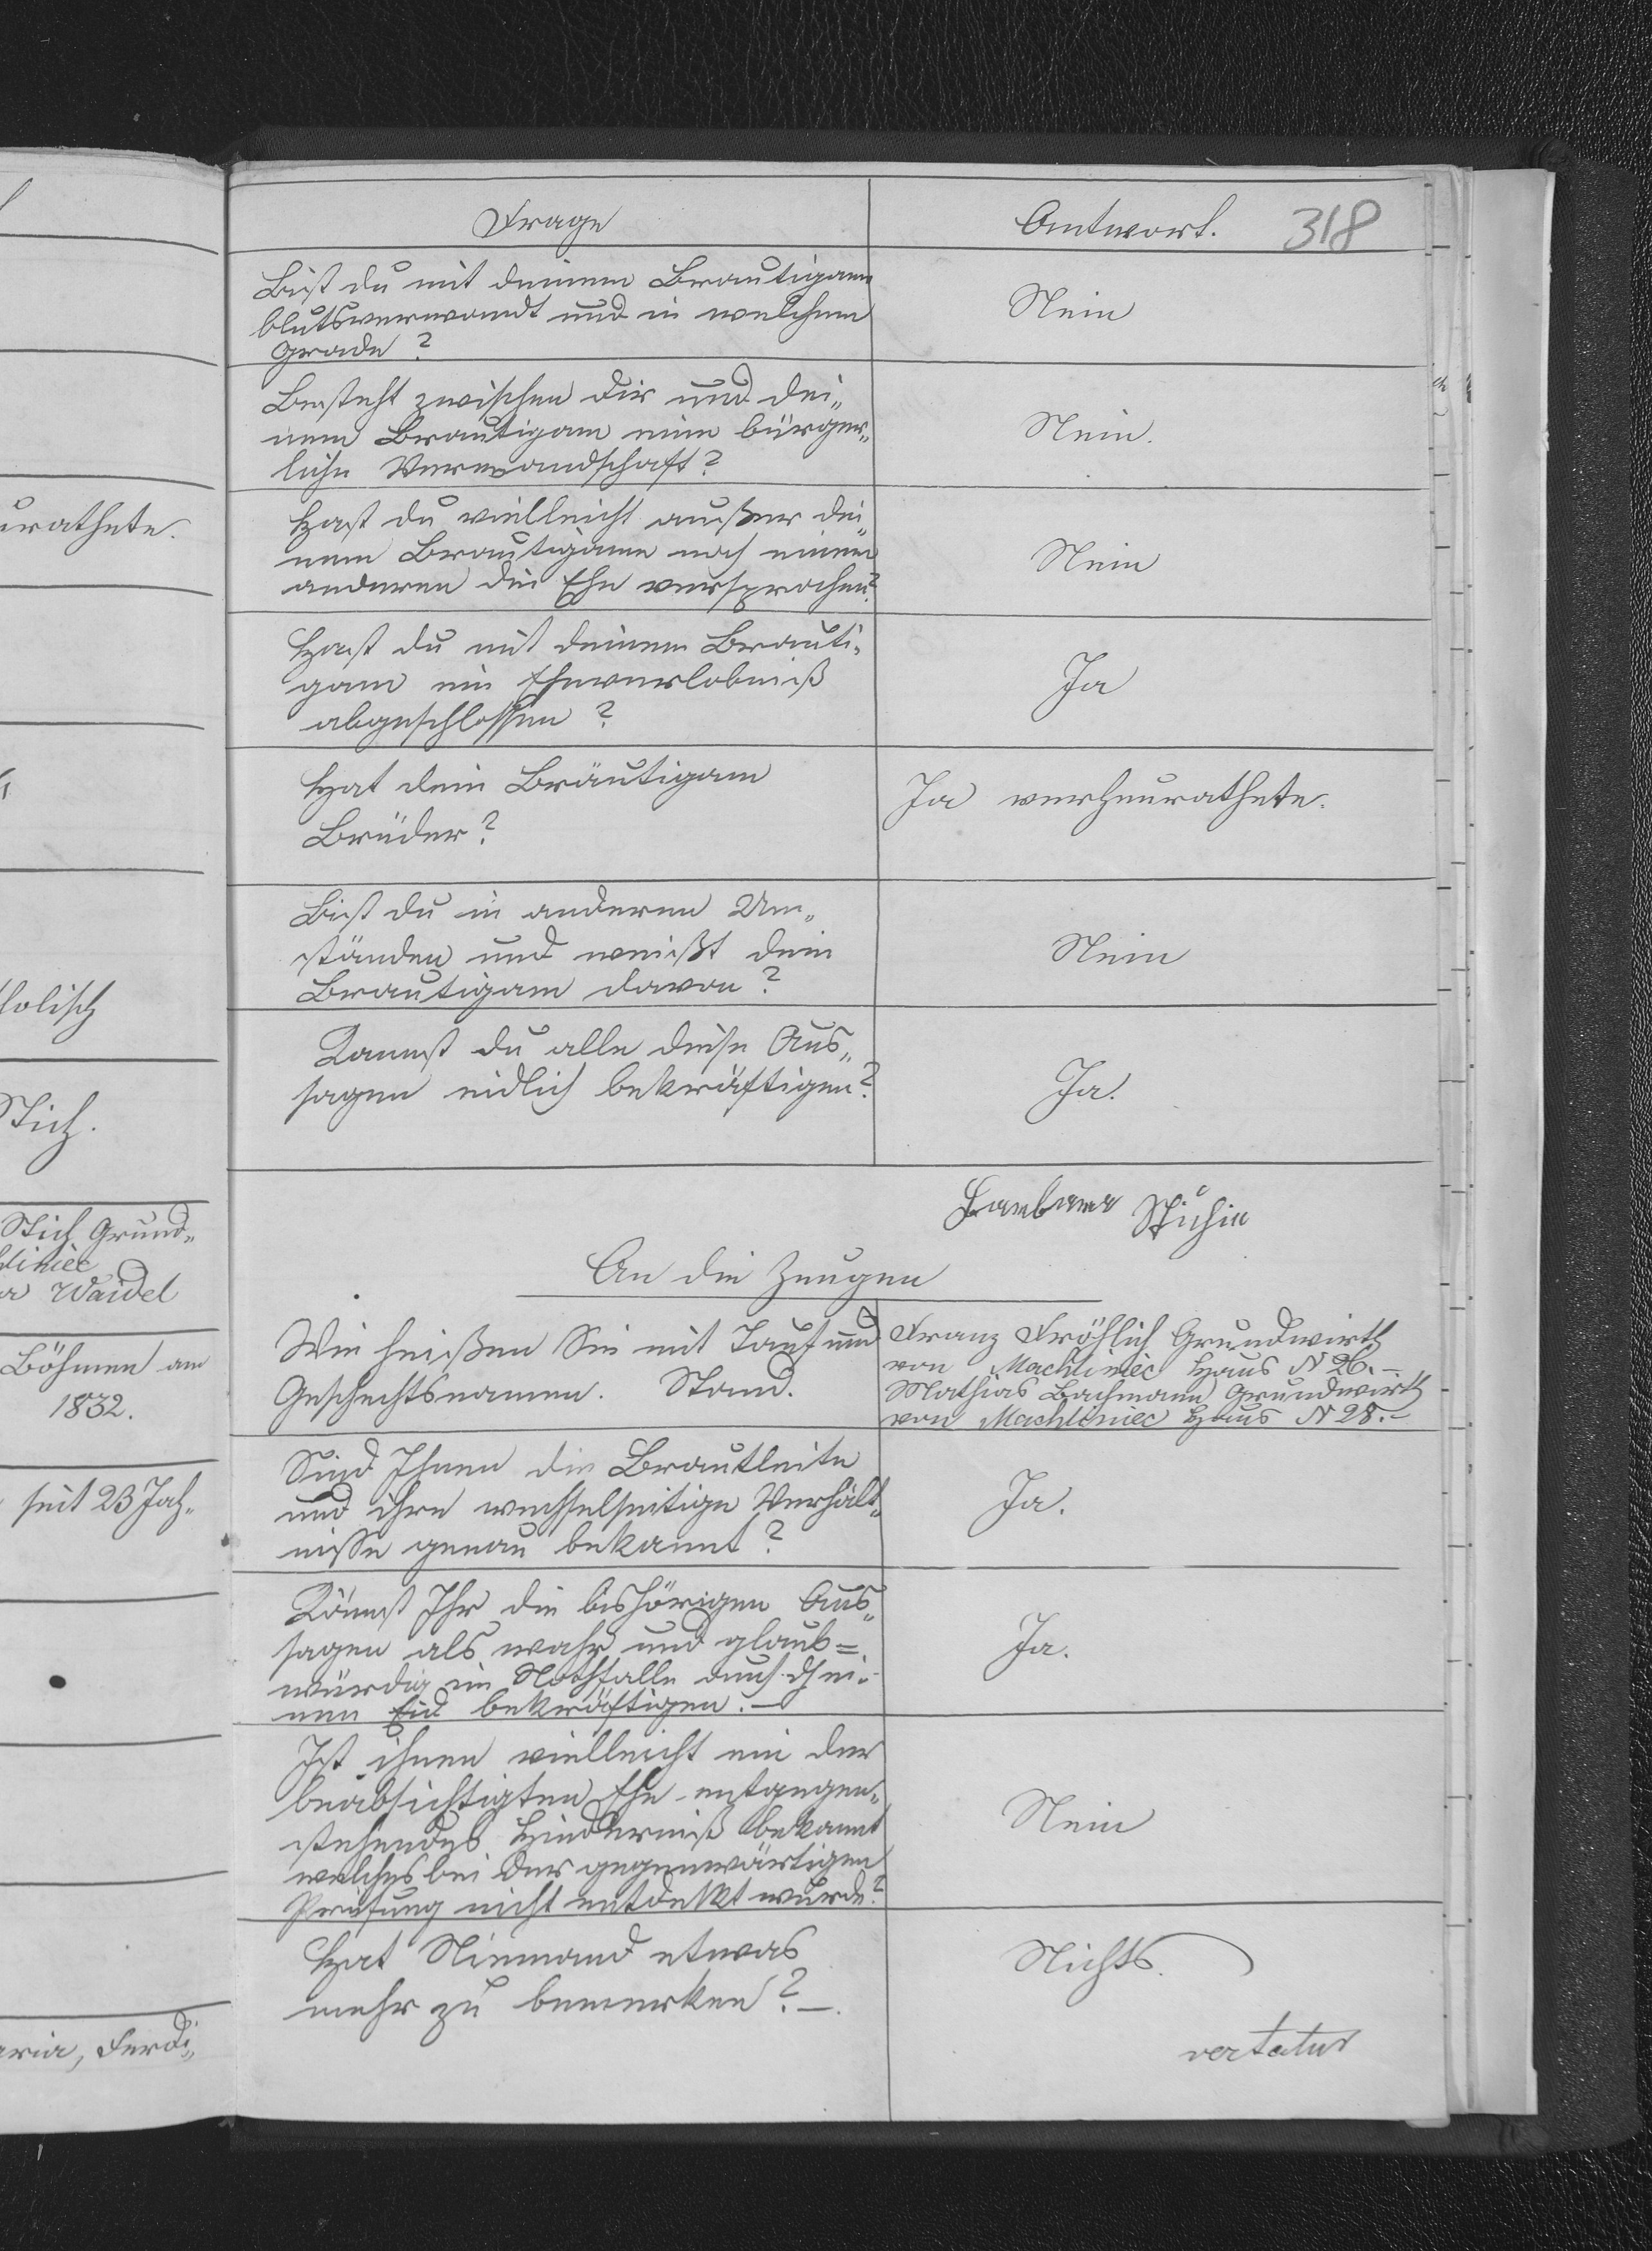 urathete.
tholisch
Stich.
Stich Grund„
liniec
Waidel
Böhmen am
1832.
seit 23 Jah„
aria, Ferdi„
Frage
Antwort. 318
Bist du mit deinem Brautigam
blutsverwandt und in welchem
Grade?
Nein
Besteht zwischen dir und dei„
nem Brautigam eine bürger„
liche Verwandschaft?
Nein.
Hast du vielleicht außer dei„
nem Brautigame noch einem
anderen die Ehe versprochen?
Nein
Hast du mit deinem Brauti„
gam ein Eheverlobniß
abgeschlossen?
Ja
Hat dein Bräutigam
Brüder?
Ja verheurathete.
Bist du in anderen Um„
ständen und weißt dein
Brautigam davon?
Nein
Kannst du alle diese Aus„
sagen eidlich bekräftigen?
Ja.
Barbara Stichin
An die Zeugen
Wie heißen Sie mit Tauf und
Geschechtsnamen. Stand.
Franz Fröhlich Grundwirth
von Machliniec Haus N 26.–
Mathias Bachmann Grundwirth
von Machliniec Haus N 28.–
Sind Ihnen die Brautleite
und ihre wechselseitige Verhält„
nisse genau bekannt?
Ja.
Könnt Ihr die bishörigen Aus„
sagen als wahr und glaub=
würdig im Nothfalle durch ei„
nen Eid bekräftigen.–
Ja.
Ist ihnen vielleicht ein der
beabsichtigten Ehe entgegen„
stehendes Hinderniß bekannt
welches bei der gegenwärtigen
Prüfung nicht entdekt wurde?
Nein
Hat Niemand etwas
mehr zu bemerken?–.
Nichts.
vertatur